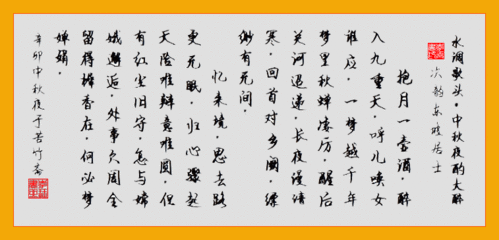 水调歌头·中秋夜酌大醉
次韵东坡居士
抱月一壶酒,醉
入九重天,呼儿唤女
谁应,一梦越千年
梦里秋蝉凄厉,醒后
关河迢递,长夜漫清
寒,回首对乡阙,缥
缈有无间。
忆来境,思去路
更无眠,归心骤起
天 难辩竟难圆,但
有红尘旧守,怎与嫦
娥邂逅,外事久周全
留得樽香在,何必梦
婵娟。
辛卯中秋夜于苦竹斋